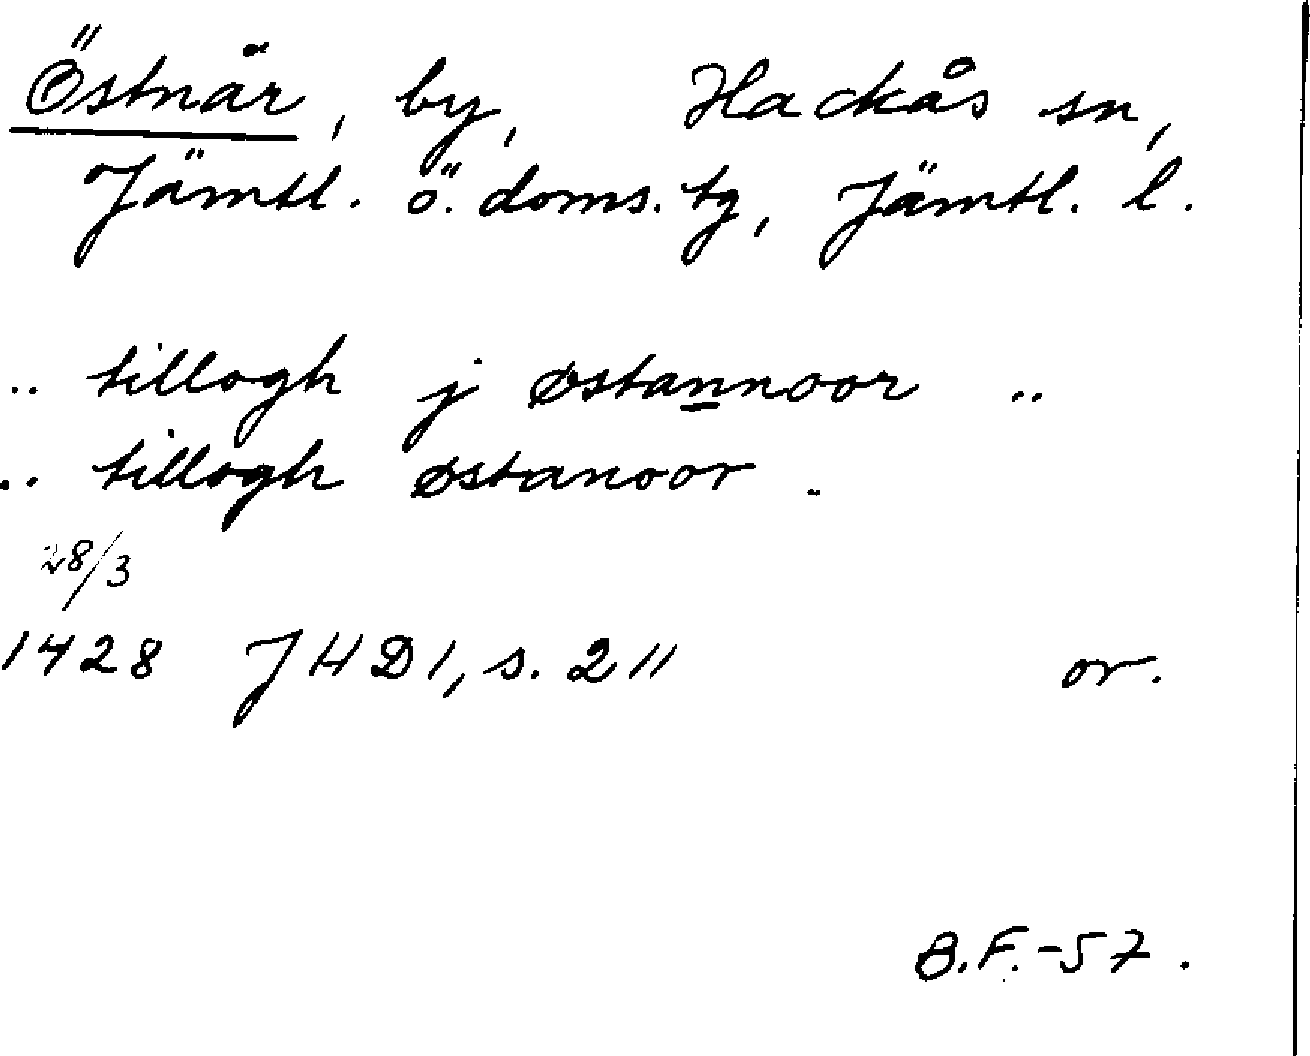 Östnår, by, Hackås sn,
Jämtl. ö. doms. tg, Jämtl. l.
.. tillogh j østannoor ..
.. tillogh østanoor .
28/3
1428 JHD 1, s. 211 or.
B.F.-57.